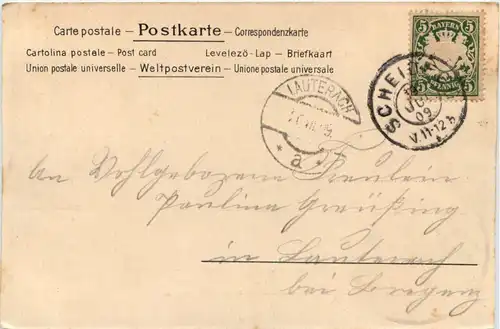 Carte postale – Postkarte – Correspondenzkarte
Cartolina postale – Post card Levelező-Lap – Briefkaart
Union postale universelle – Weltpostverein – Unione postale universale
BAYERN
5 5
PFENNIG
LAUTERACH
* a *
09
V.11-12 h
An Wohlgeborene Fräulein
Paulina Greußing
in Lauterach
bei Bregenz